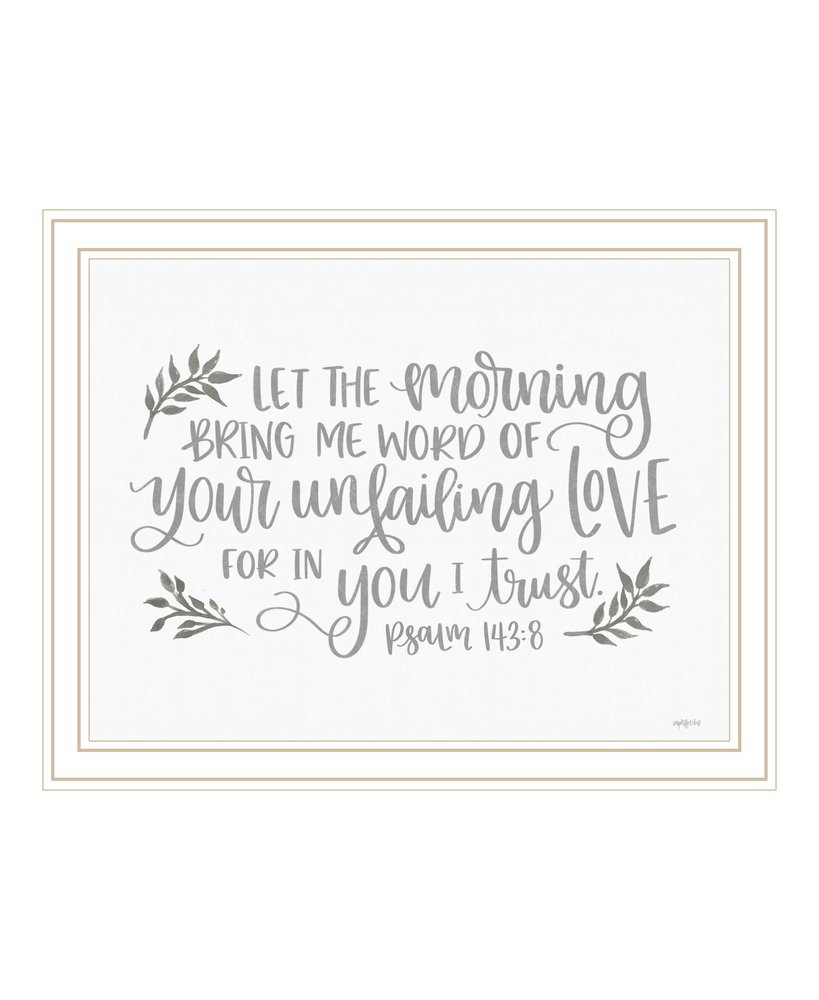 LET THE morning
BRING ME WORD OF
your unfailing LOVE
FOR IN you I trust.
Psalm 143:8